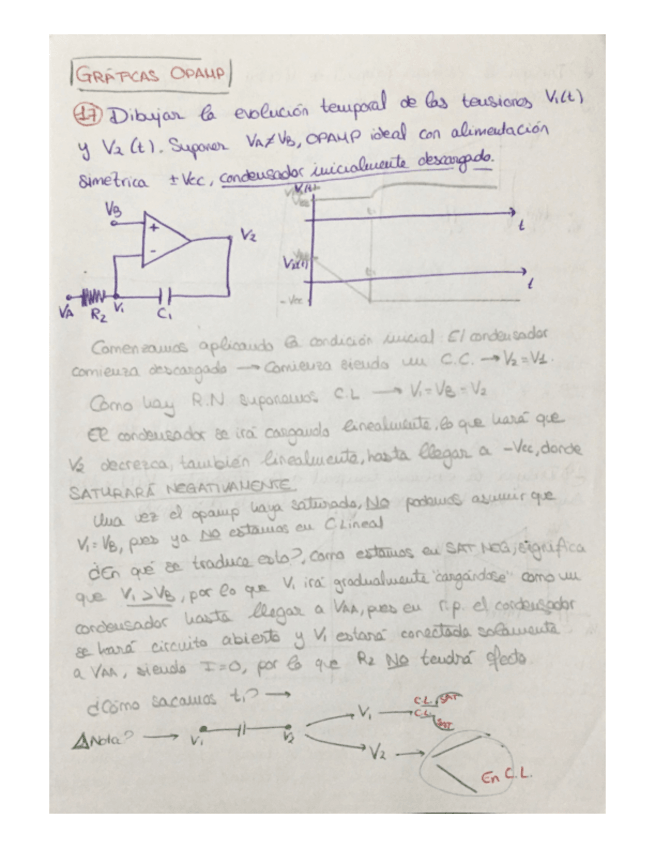 GRÁFICAS OPAMP
17 Dibujar la evolución temporal de las tensiones V1(t)
y V2(t). Suponer VA≠VB, OPAMP ideal con alimentación
simétrica ±Vcc, condensador inicialmente descargado.
VB
+
-
V2
VA
R2
V1
C1
t
V2(t)
t1
t
-Vcc
Comenzamos aplicando la condición inicial. El condensador
comienza descargado → Comienza siendo un C.C. → V2=V1.
Como hay R.N suponemos C.L → V1=VB=V2
El condensador se irá cargando linealmente, lo que hará que
V2 decrezca, también linealmente, hasta llegar a -Vcc, donde
SATURARÁ NEGATIVAMENTE.
Una vez el opamp haya saturado, NO podemos asumir que
V1=VB, pues ya NO estamos en C.Lineal
¿En qué se traduce esto?, como estamos en SAT NEG, significa
que V1>VB, por lo que V1 irá gradualmente "cargándose" como un
condensador hasta llegar a VAA, pues en r.p. el condensador
se hará circuito abierto y V1 estará conectada solamente
a VAA, siendo I=0, por lo que R2 NO tendrá efecto.
¿Cómo sacamos t1? →
Nota? → V1 V2 → V1 → C.L. SAT
C.L. SAT
→ V2 →
En C.L.